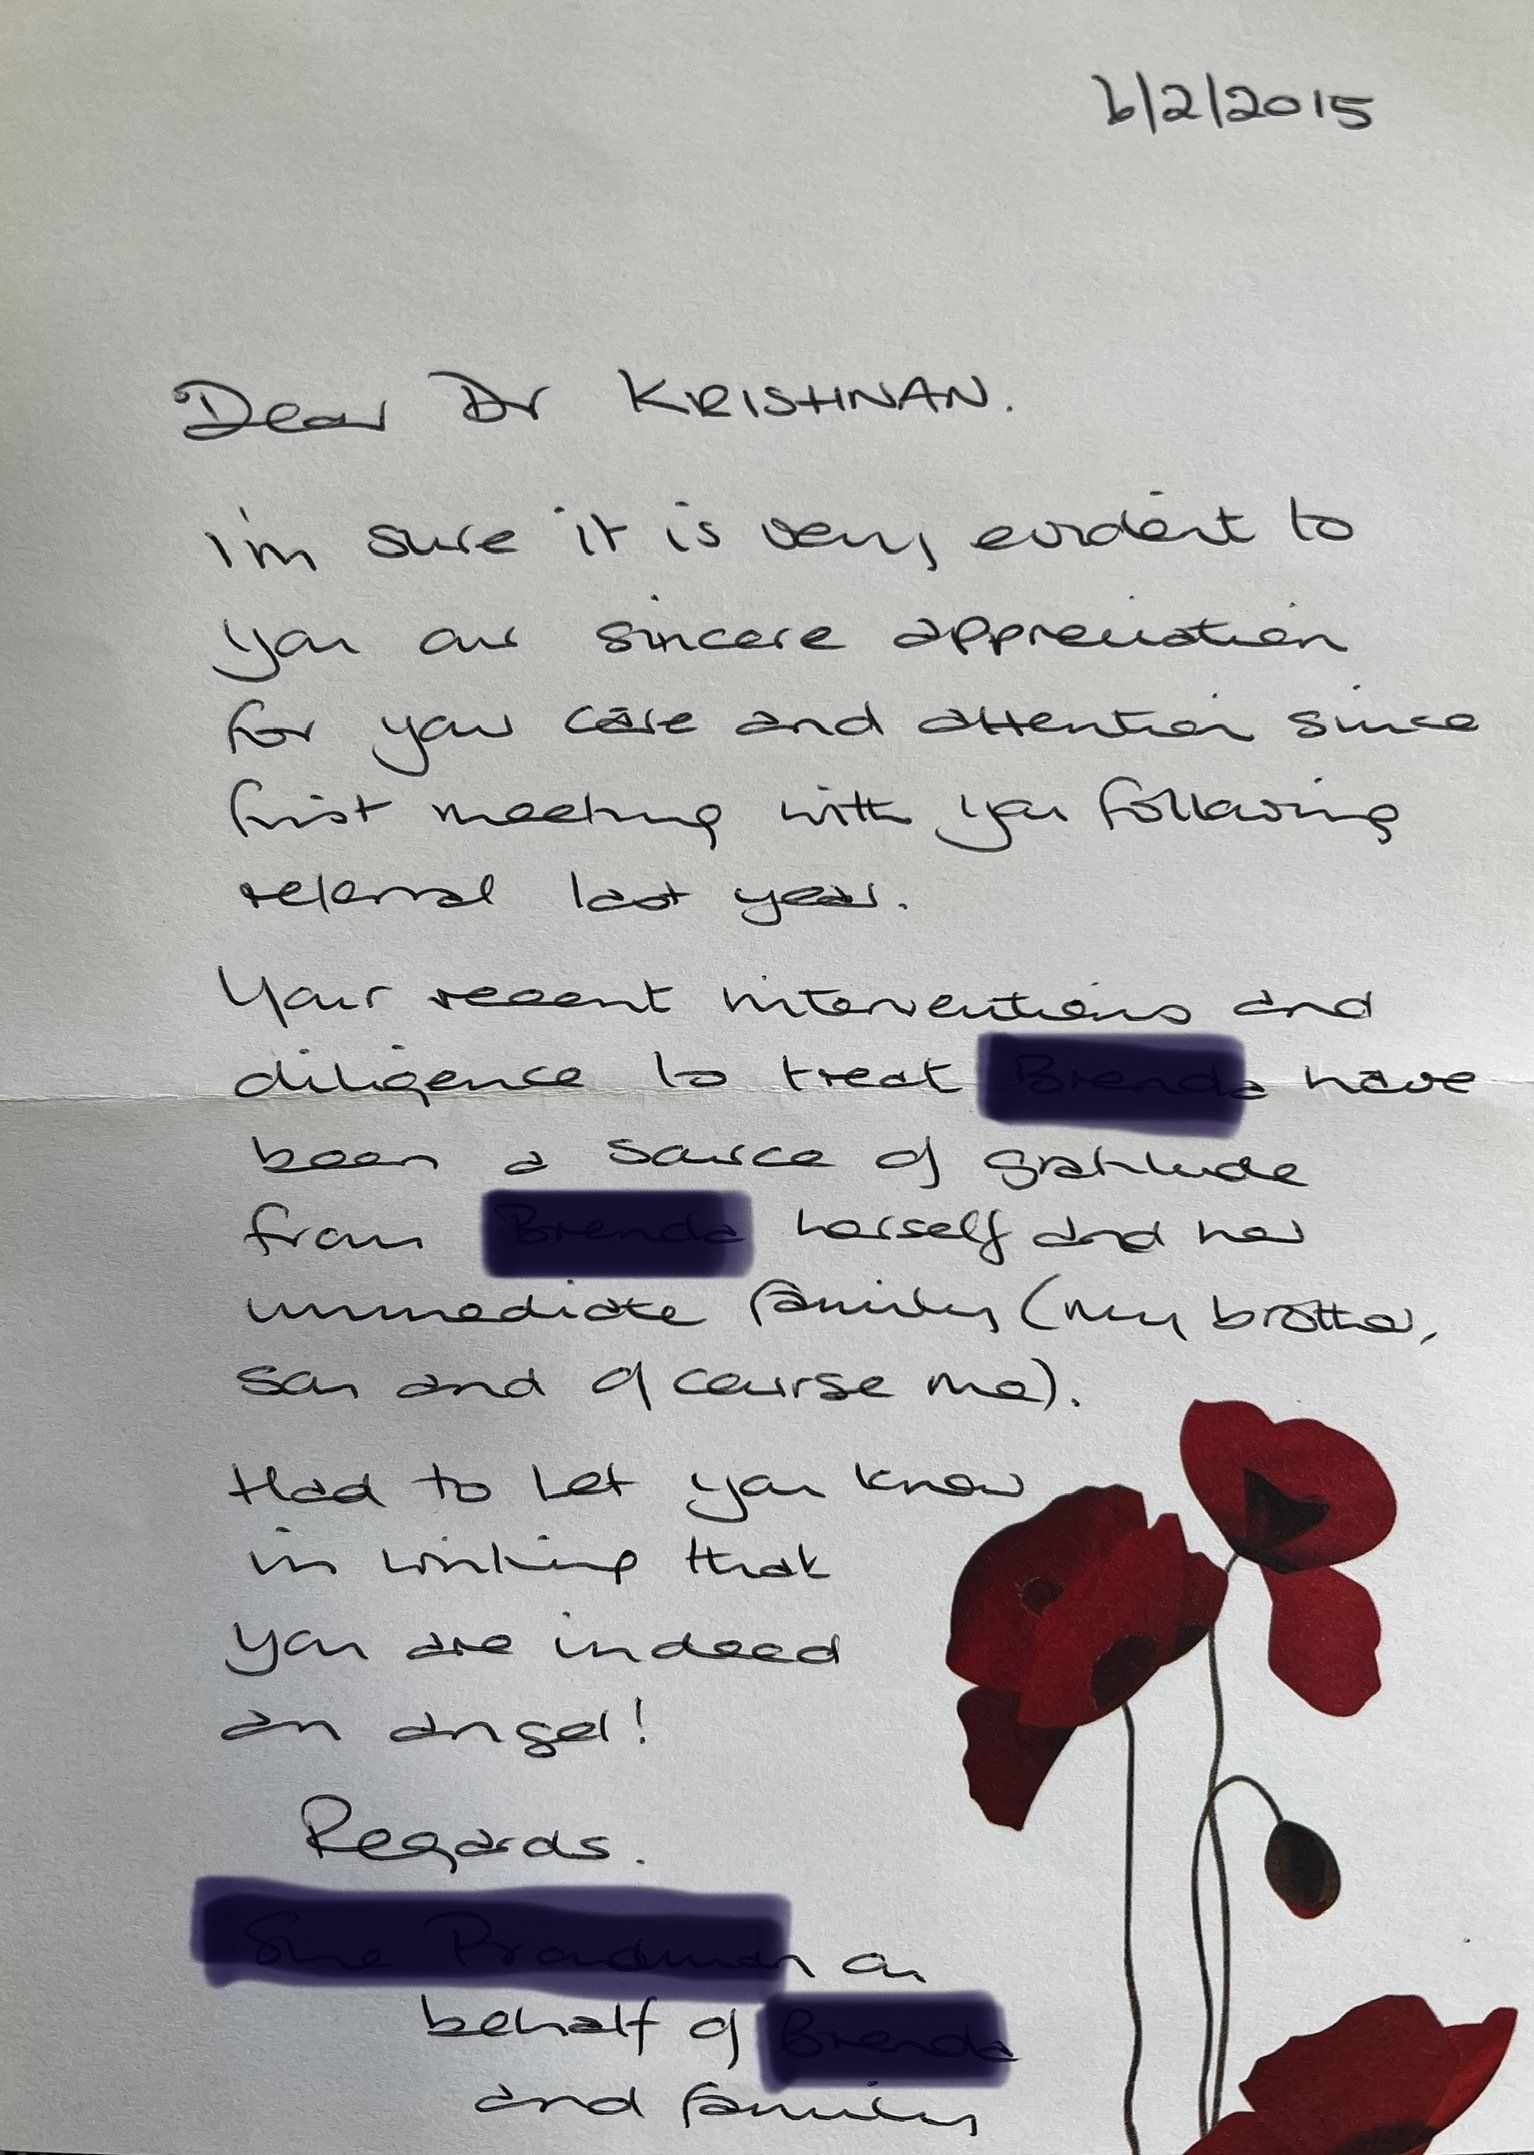 6/2/2015
Dear Dr KRISHNAN.
I'm sure it is very evident to
you our sincere appreciation
for your care and attention since
first meeting with you following
referral last year.
Your recent interventions and
diligence to treat have
been a source of gratitude
from herself and her
immediate family (my brother,
son and of course me).
Had to let you know
in writing that
you are indeed
an angel!
Regards.
on
behalf of
and family